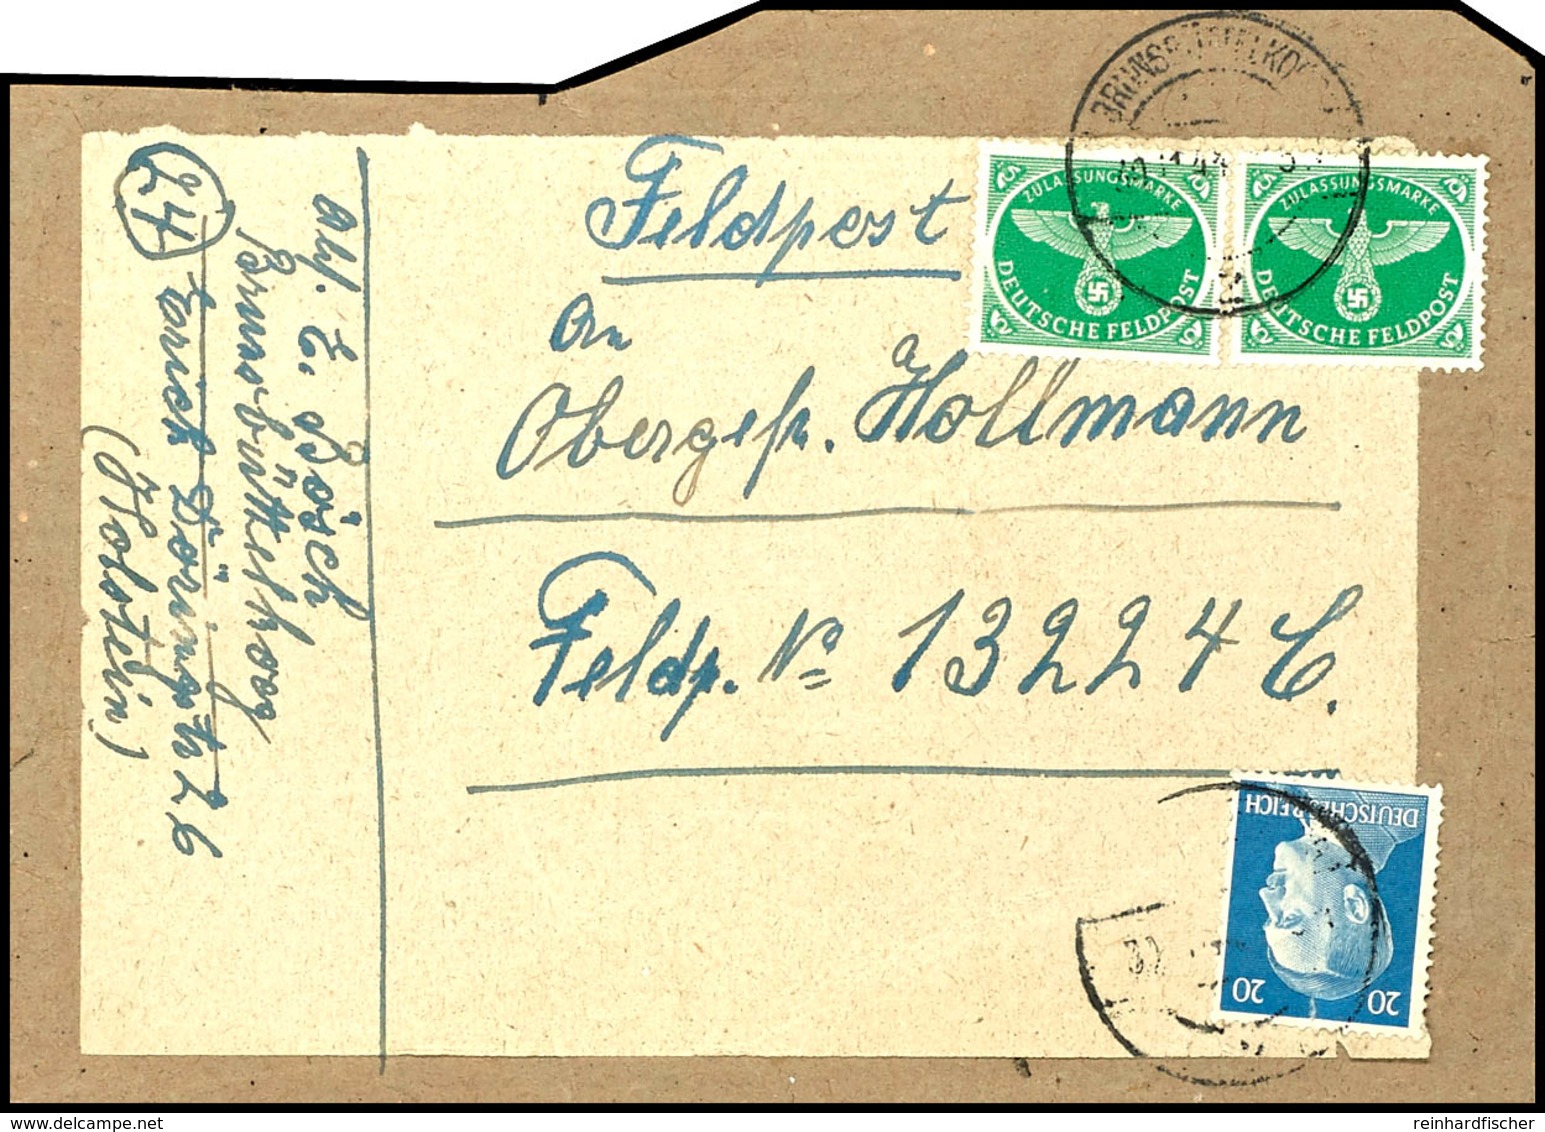 Feldpost
An
Obergefr. Hollmann
Feldp. No 13224 C.
Abs. E. Bösch
Brunsbüttelkoog
Döringstr 26
(Holstein)
24
ZULASSUNGSMARKE
DEUTSCHE FELDPOST
ZULASSUNGSMARKE
DEUTSCHE FELDPOST
BRUNSBÜTTELKOOG
DEUTSCHES REICH
20 20
delcampe.net
reinhardfischer